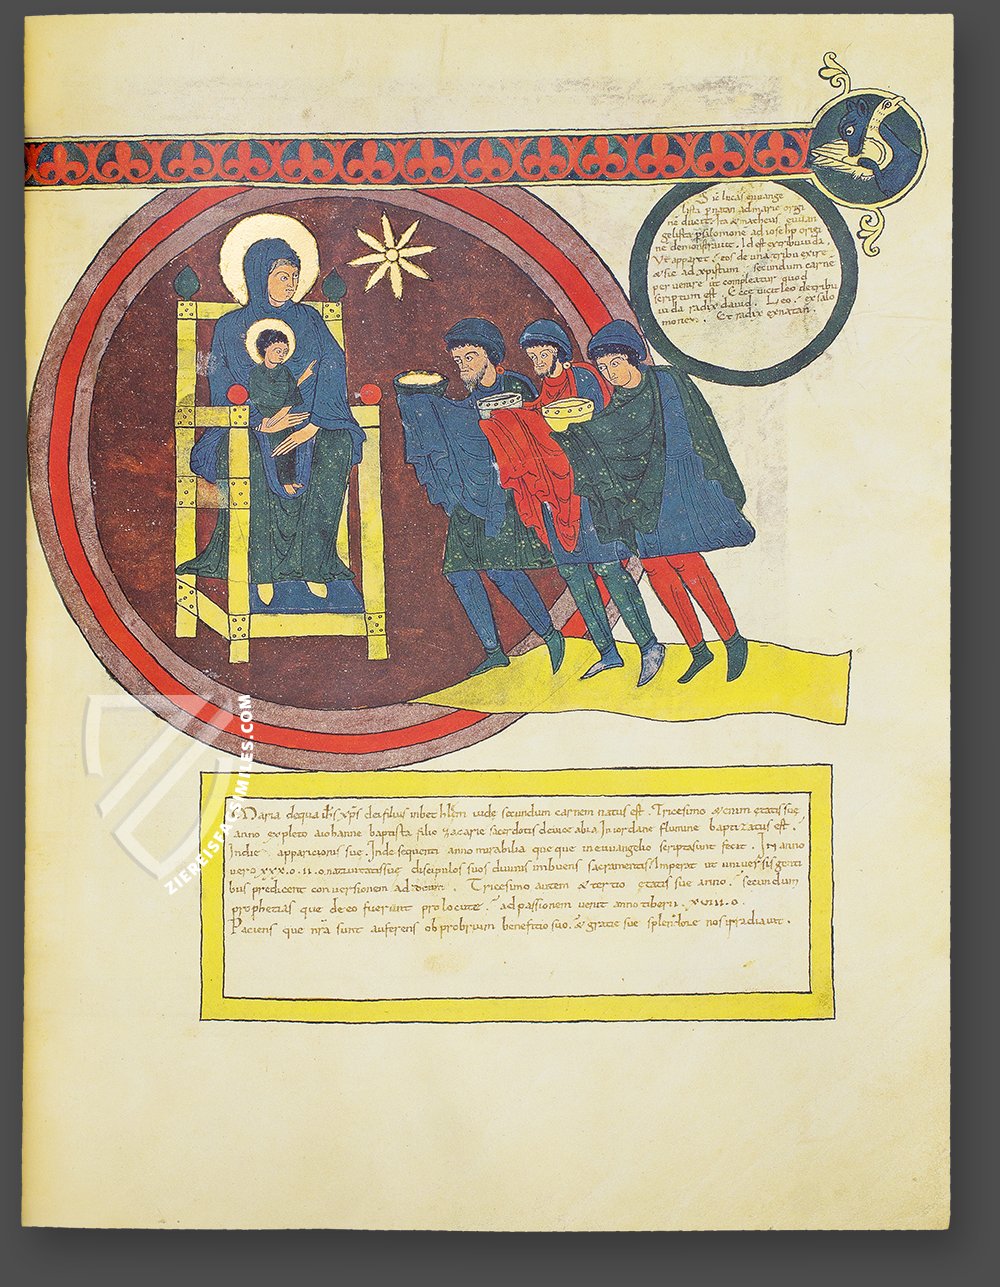 Sic lucas euuange
lista p natan ad maria origi
nē ducit. Ita & matheus euuan
gelista p salomonē ad ioseph origi
nē demonstrauit. Id est ex tribu iuda.
Ut appareat eos de una tribu exire
& sic ad xpistum secundum carnē
peruenire ut compleatur quod
scriptum est. Ecce uicit leo de tribu
iuda radix dauid. Leo ex salo
mone. Et radix ex natan.
Maria de qua ihs xps dei filius in bethlem iude secundum carnem natus est. Tricesimo etatis sue
anno expleto a iohanne baptista filio zacarie sacerdotis de uice abia In iordane flumine baptizatus est.
In die apparicionis sue. Inde sequenti anno mirabilia que que in euuangelio scripta sunt fecit. In anno
uero xxx.o.ii.o natiuitatis sue discipulos suos diuinis imbuens sacramentis. Imperat ut uniuersis genti
bus predicent conuersionem ad. Tricesimo autem & tertio etatis sue anno. secundum
prophetias que de eo fuerunt prolocute. ad passionem uenit anno tiberii. xuiii.o.
Paciens que nra sunt auferens obprobrium benefitio suo. & gratie sue splendore nos irradiauit.
ZIEREISFACSIMILES.COM